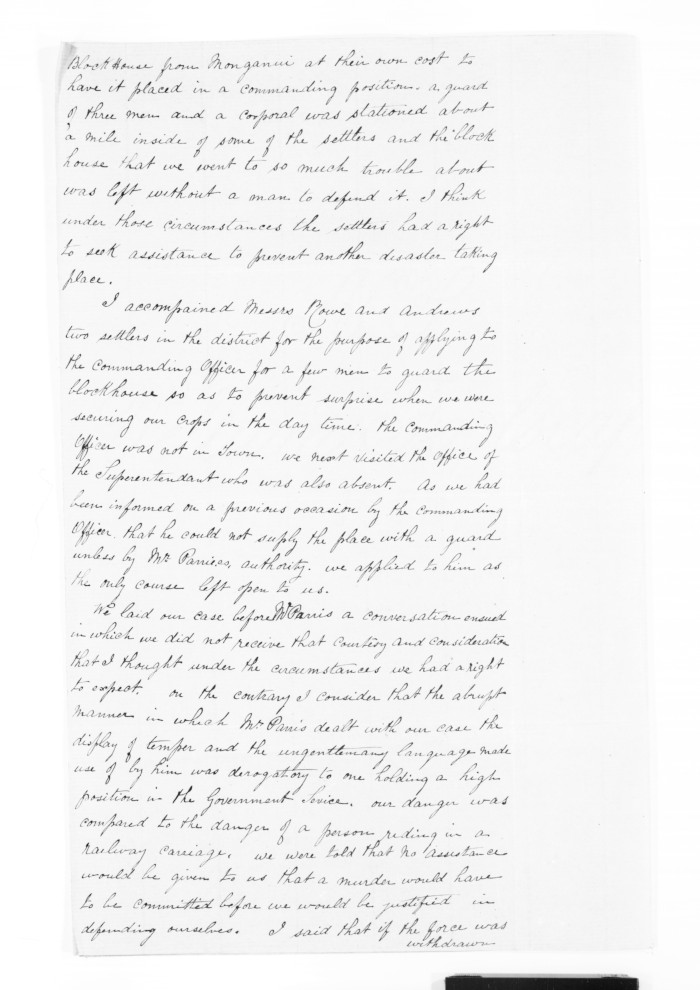 Block House from Monganui at their own cost to
have it placed in a commanding position. a guard
of three men and a corporal was stationed about
a mile inside of some of the settlers and the block
house that we went to so much trouble about
was left without a man to defend it. I think
under those circumstances the settlers had a right
to seek assistance to prevent another disaster taking
place.
I accompained Messrs Rowe and Andrews
two settlers in the district for the purpose of applying to
the commanding Officer for a few men to guard the
blockhouse so as to prevent surprise when we were
securing our crops in the day time. the commanding
Officer was not in Town. we next visited the Office of
the Superentendant who was also absent. As we had
been informed on a previous occasion by the commanding
Officer, that he could not suply the place with a guard
unless by Mr. Parrises, authority. we applied to him as
the only course left open to us.
We laid our case before Mr Parris a conversation ensued
in which we did not receive that courtesy and consideration
that I thought under the circumstances we had a right
to expect. on the contrary I consider that the abrupt
manner in which Mr. Parris dealt with our case the
display of temper and the ungentlemany language made
use of by him was derogatory to one holding a high
position in the Government Sevice. our danger was
compared to the danger of a person riding in a
railway carriage. we were told that no assistance
would be given to us that a murder would have
to be committed before we would be justified in
depending ourselves. I said that if the force was
withdrawn